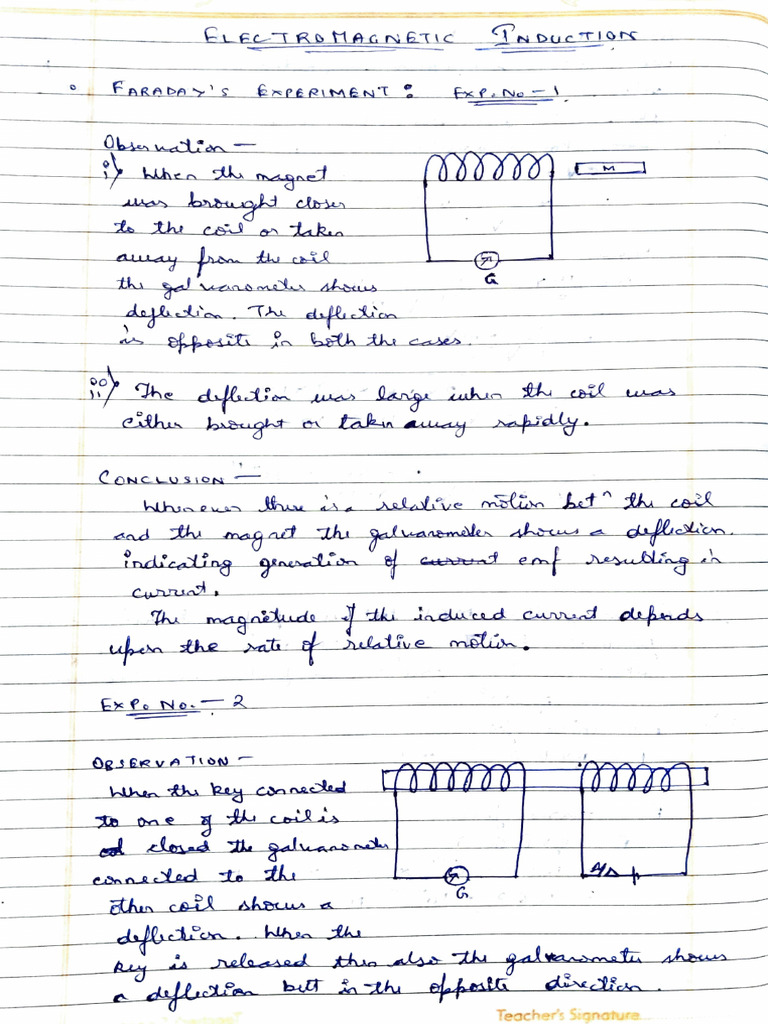 ELECTROMAGNETIC INDUCTION
FARADAY'S EXPERIMENT: EXP. NO - 1
Observation —
i) When the magnet
was brought closer
to the coil or taken
away from the coil
the galvanometer shows
deflection. The deflection
is opposite in both the cases.
M
G
ii) The deflection was large when the coil was
either brought or taken away rapidly.
CONCLUSION —
Whenever there is a relative motion betn the coil
and the magnet the galvanometer shows a deflection.
indicating generation of current emf resulting in
current.
The magnitude of the induced current depends
upon the rate of relative motion.
EXP. NO. — 2
OBSERVATION —
When the key connected
to one of the coil is
closed the galvanometer
connected to the
other coil shows a
deflection. When the
key is released then also the galvanometer shows
a deflection but in the opposite direction.
G
Teacher's Signature